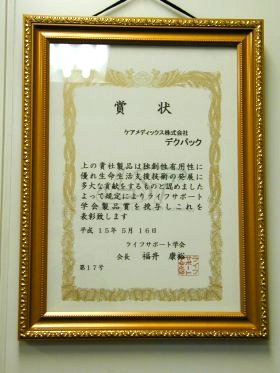 賞状
ケアメディックス株式会社
デクパック
上の貴社製品は独創性有用性に
優れ生命生活支援技術の発展に
多大な貢献をするものと認めました
よって規定によりライフサポート
学会製品賞を授与しこれを
表彰致します
平成 15年 5月 16日
ライフサポート学会
会長 福井 康裕
第17号